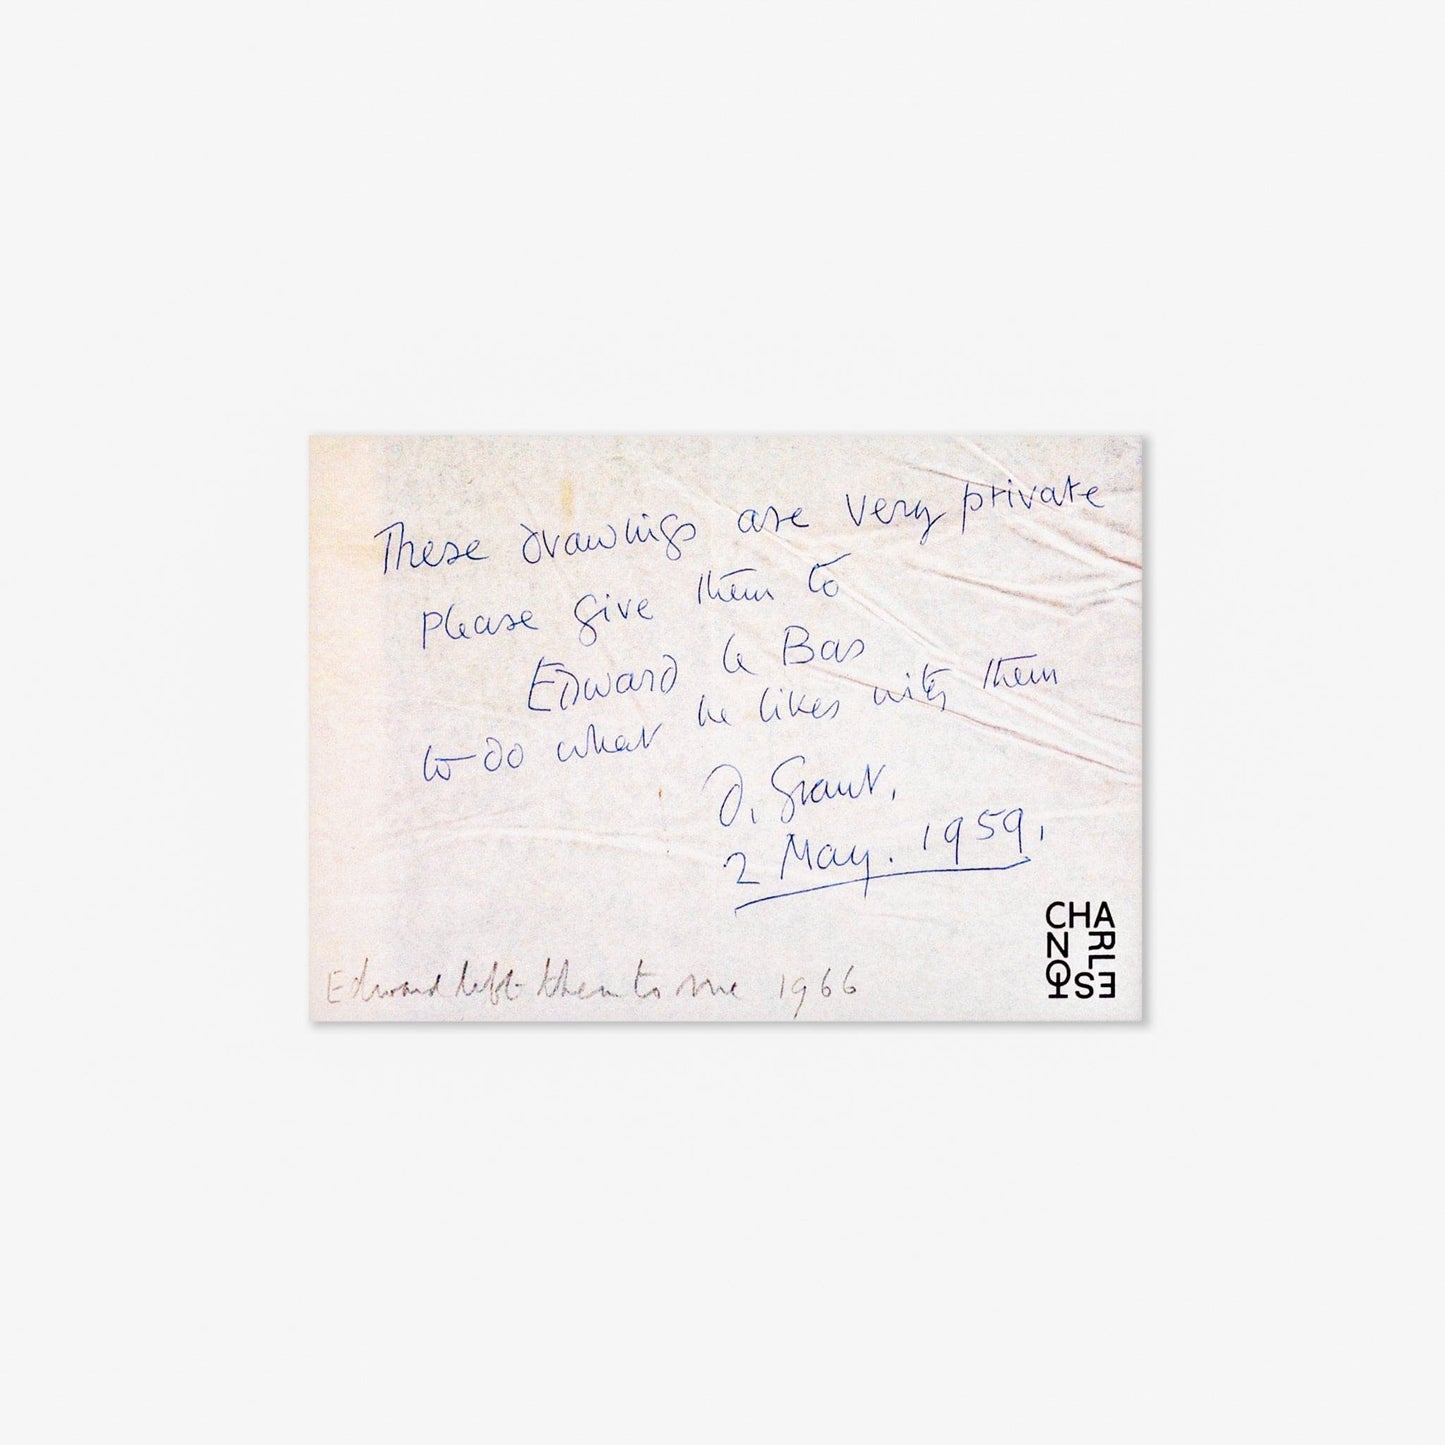 These drawings are very private
please give them to
Edward le Bas
to do what he likes with them
D. Grant.
2 May. 1959.
Edward left them to me 1966
CHARLESTON